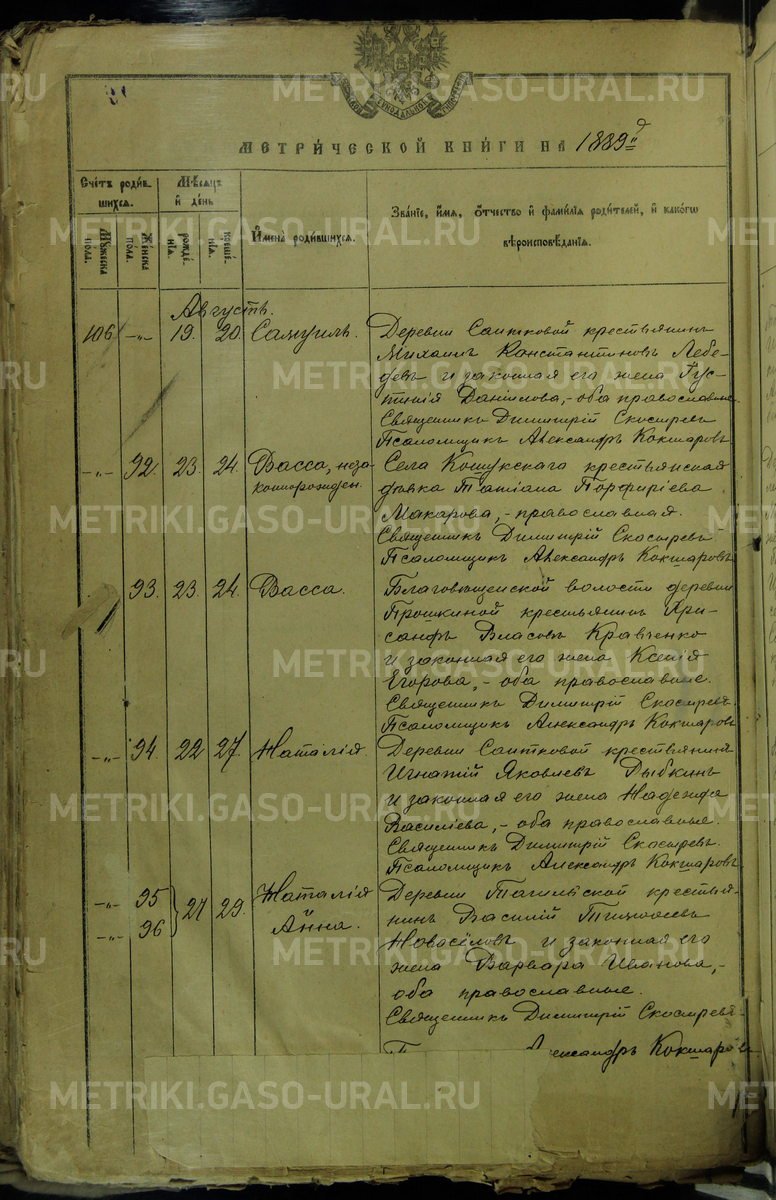 МЕТРИ́ЧЕСКОЙ КНИ́ГИ НА 1889 г.
Счетъ роди́вшихся.
Мѣсяцъ и день
И҆мена̀ роди́вшихся.
Зва́нїе, и҆́мя, ѻ҆́тчество и҆ фами́лїя роди́телей, и҆ како́гѡ
вѣроисповѣ́данїя.
Му́жеска по́ла.
Же́нска по́ла.
рожде́нїя.
креще́нїя.
Августъ.
106 -„- 19. 20. Самуилъ. Деревни Саитковой крестьянинъ
Михаилъ Константиновъ Лебе-
девъ и законная его жена Іус-
тинія Данилова, - оба православные.
Священникъ Димитрій Скосыревъ
Псаломщикъ Александръ Кокшаровъ
-„- 92. 23. 24. Васса, неза- Села Кошукскаго крестьянская
коннорожден. дѣвка Татіана Порфиріева
Макарова, - православная.
Священникъ Димитрій Скосыревъ
Псаломщикъ Александръ Кокшаровъ
93. 23. 24. Васса. Благовѣщенской волости деревни
Прошкиной крестьянинъ Хри-
санфъ Власовъ Кравченко
и законная его жена Ксенія
Егорова, - оба православные.
Священникъ Димитрій Скосыревъ.
Псаломщикъ Александръ Кокшаровъ
-„- 94. 22 27. Наталія. Деревни Саитковой крестьянинъ
Игнатій Яковлевъ Рыбкинъ
и законная его жена Надежда
Василіева, - оба православные.
Священникъ Димитрій Скосыревъ.
Псаломщикъ Александръ Кокшаровъ
-„- 95 27 29. Наталія Деревни Тагильской крестья-
и нинъ Василій Тимофеевъ
-„- 96 Анна. Новосёловъ и законная его
жена Варвара Иванова, -
оба православные.
Священникъ Димитрій Скосыревъ
Александръ Кокшаровъ
METRIKI.GASO-URAL.RU